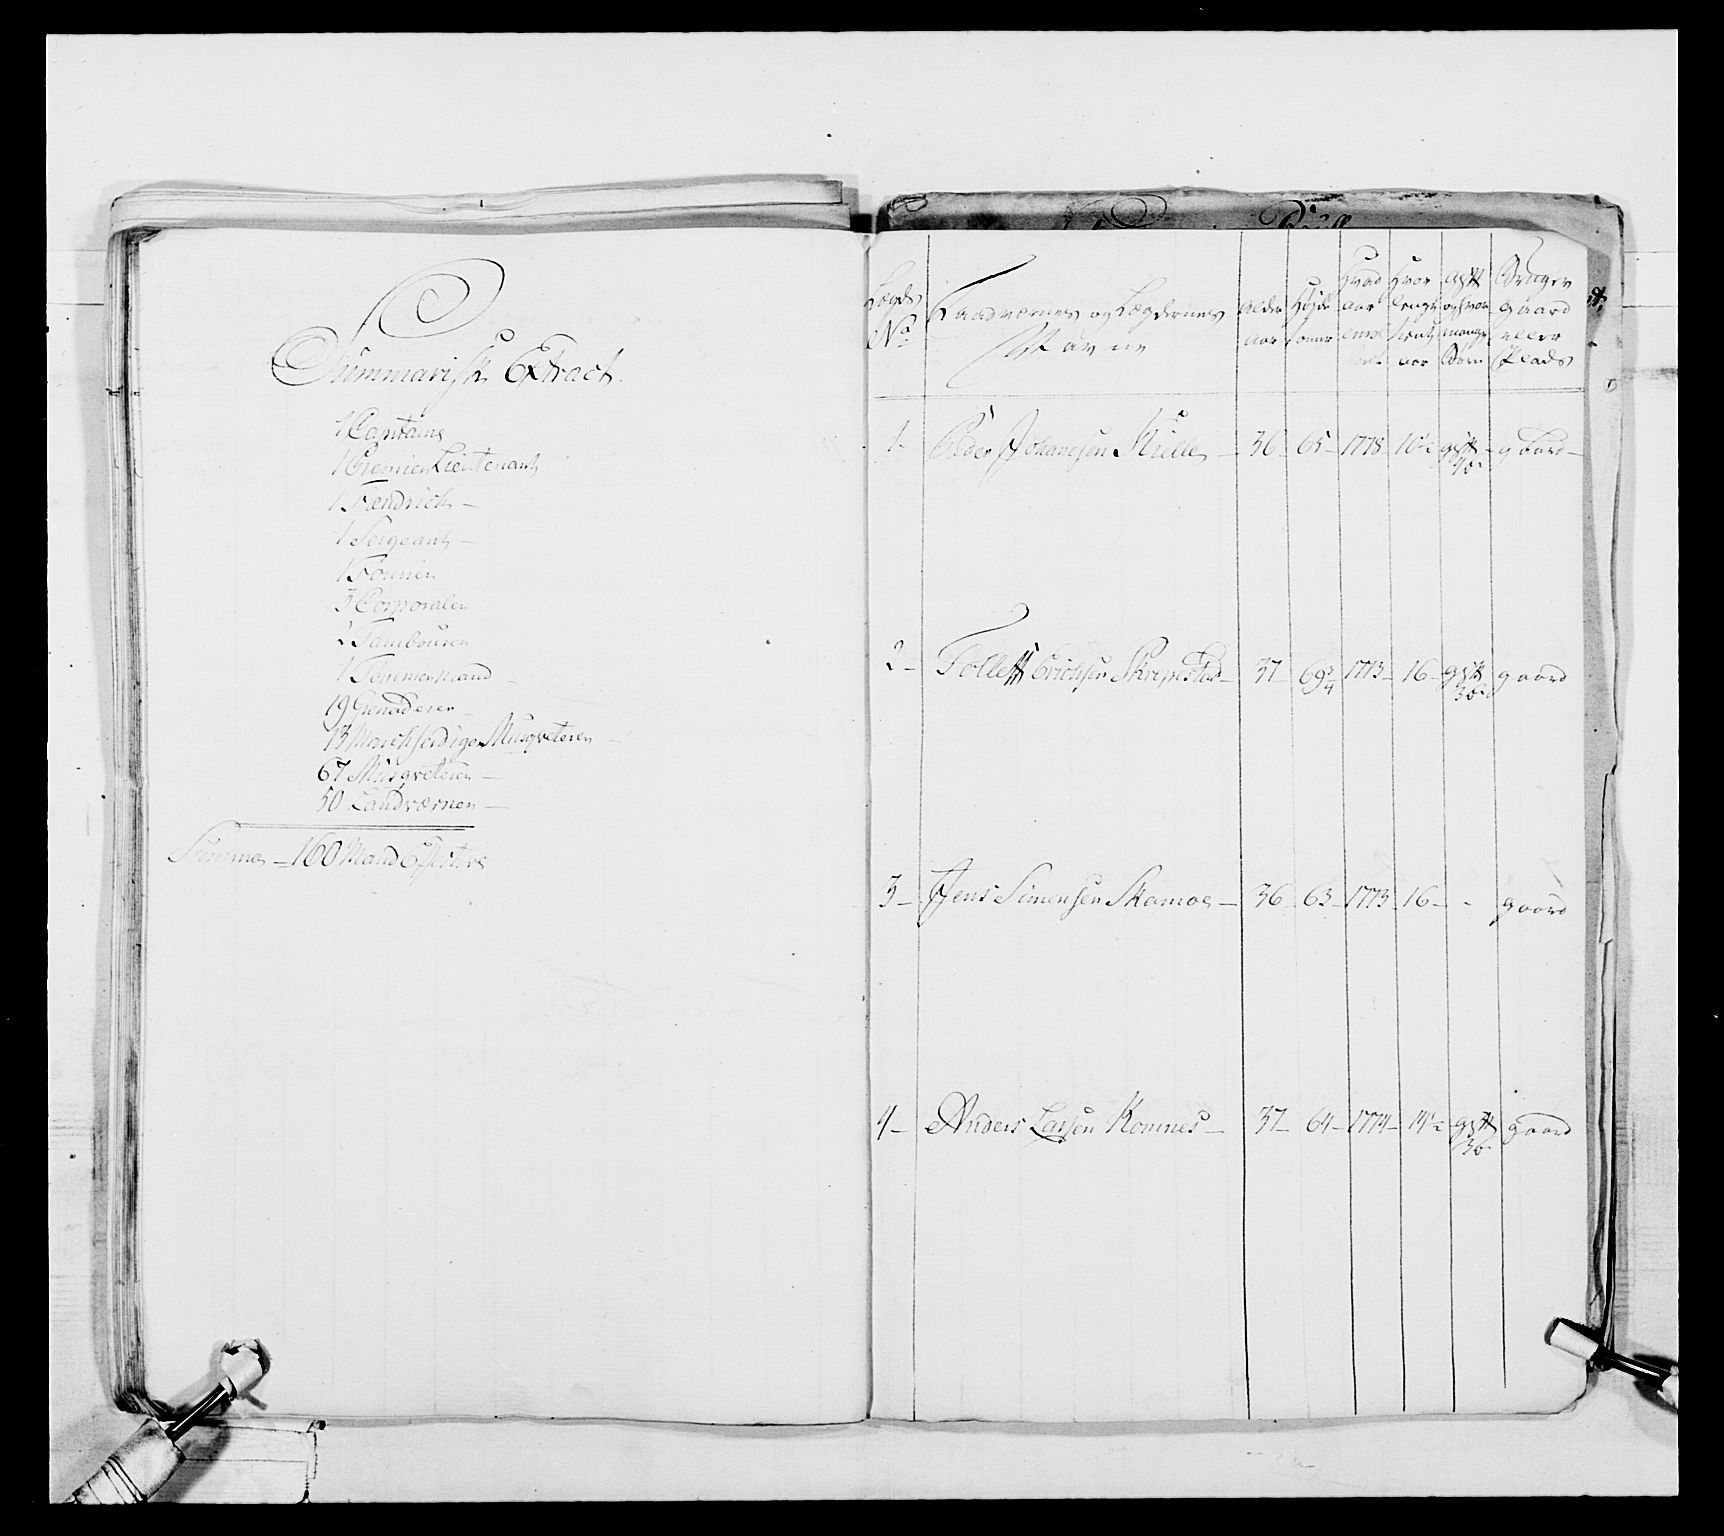 Summarisk Extract.
1 Capitains
1 Premier Lieutenant
1 Fændrich —
1 Sergeant —
1 Fourier
3 Corporaler
2 Tambourer
1 Tømmermand —
19 Grenaderer —
13 Marchferdige Musqveterer —
67 Musqveterer —
50 Landværner —
Summa — 160 Mand Effective
Lægds No
Landværnes og Lægdernes Navne
Alder aar
Høyde tomer
Hvad aar
Hvor lenge tient aar
gift og hvor mange Børn
Bruger gaard eller Plads
1 — Peder Johanesen Kulle — 36 — 65 — 1778 — 10 1/2 gift gaard —
2 — Tollef Erichsen Skripestad — 37 — 69 3/4 1773 — 16 — gift 3 b. gaard
3 — Jens Simensen Skamoe — 36 — 63 — 1773 — 16 — - gaard
4 — Anders Larsen Komnes — 37 — 64 — 1774 — 14 1/2 gift 3 b. gaard